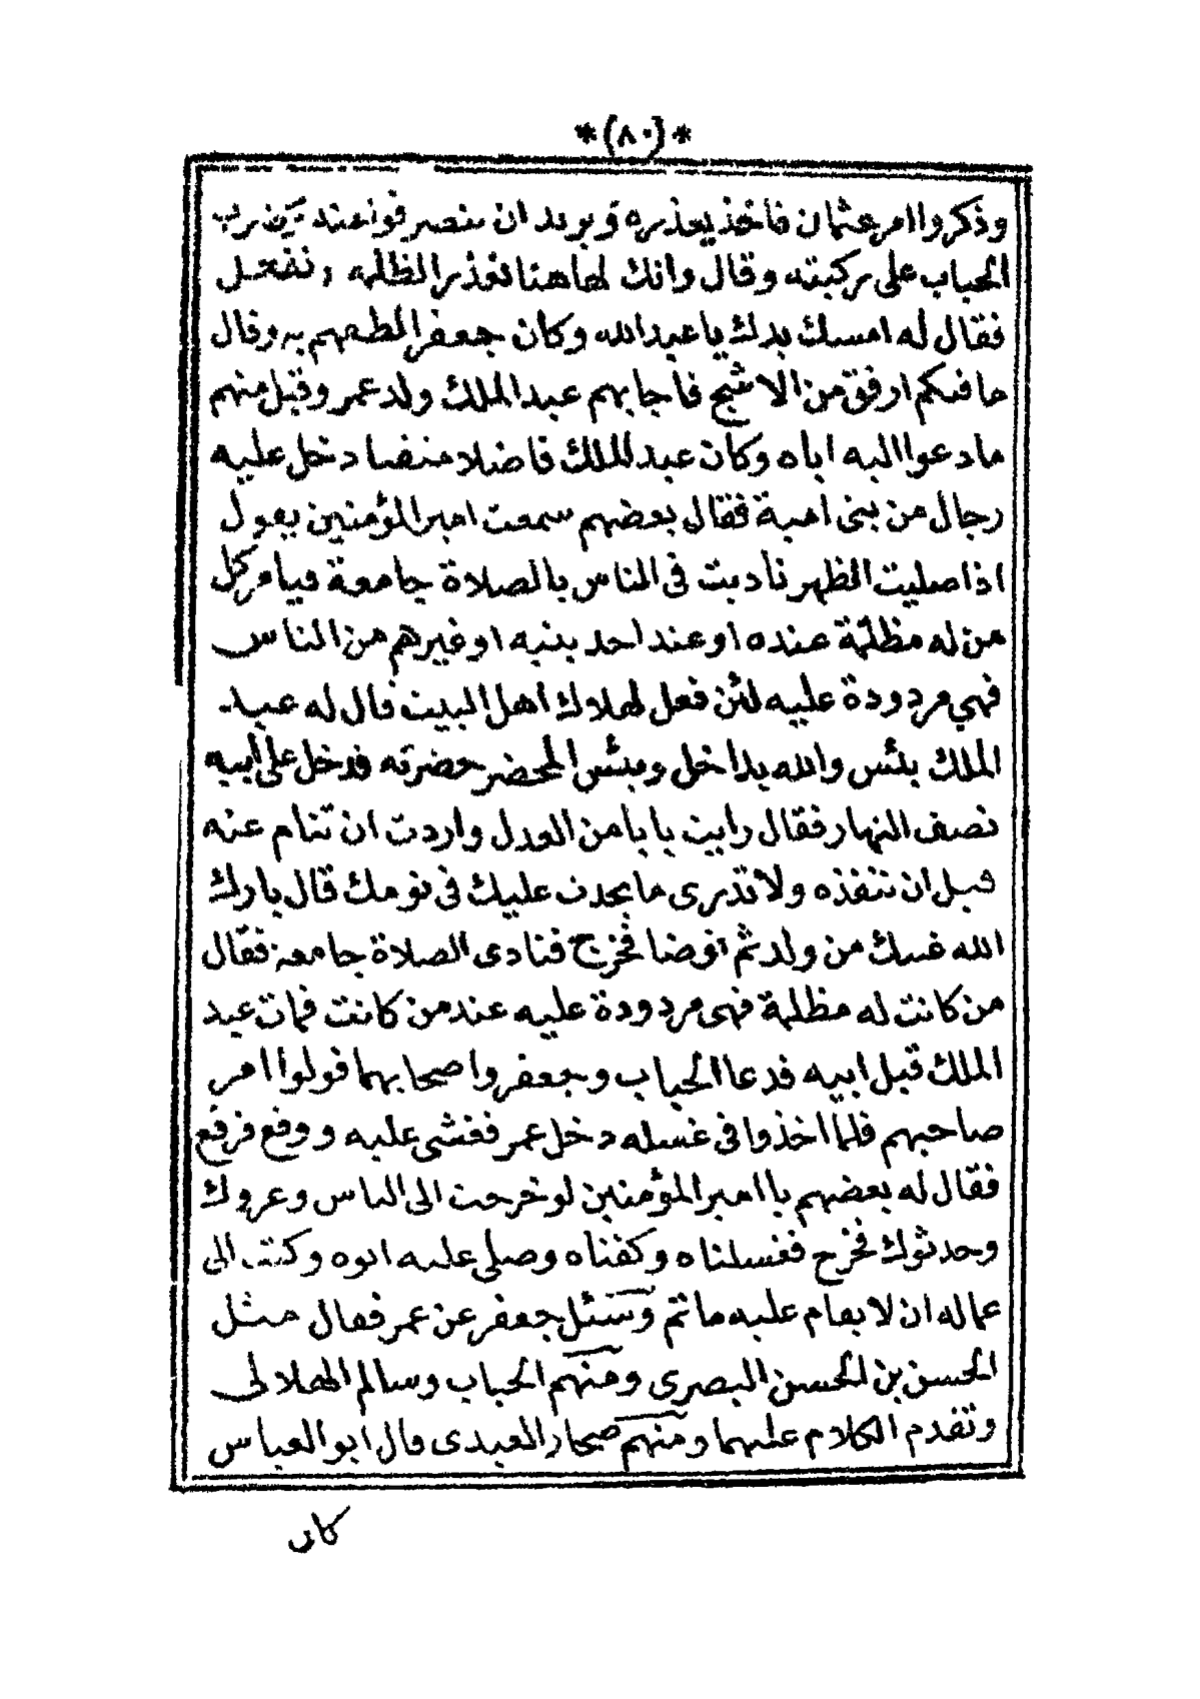 *(٨٠)*
وذكروا امر عثمان فاخذ يعذره ويريد ان ينتصر فوثب عند ذلك
الحباب على ركبته وقال وانك لهاهنا تعذر الظلمة وتفعل
فقال له امسك يدك يا عبد الله وكان جعفر الطفهم به وقال
ما فيكم ارفق من الاشج فاجابهم عبد الملك ولد عمر وقبل منهم
ما دعوا اليه اباه وكان عبد الملك فاضلا دخل عليه
رجال من بنى امية فقال بعضهم سمعت امير المؤمنين يقول
اذا صليت الظهر ناديت فى الناس بالصلاة جامعة فيامر كل
من له مظلمة عنده او عند احد بنيه او غيرهم من الناس
فهي مردودة عليه لئن فعل لهلاك اهل البيت قال له عبد
الملك بئس والله يدا خل وبئس المحضر حضرته فدخل على ابيه
نصف النهار فقال رايت يا با من العدل واردت ان تنام عنه
قبل ان تنفذه ولا تدرى ما يحدث عليك فى نومك قال بارك
الله فيك من ولد ثم توضا فخرج فنادى الصلاة جامعة فقال
من كانت له مظلمة فهى مردودة عليه عند من كانت فمات عبد
الملك قبل ابيه فدعا الحباب وجعفر واصحابهما فولوا امر
صاحبهم فلما اخذوا فى غسله دخل عمر فغشى عليه ووقع فرفع
فقال له بعضهم يا امير المؤمنين لو خرجت الى الناس وعزوك
وحدثوك فخرج فغسلناه وكفناه وصلى عليه ابوه وكتب الى
عماله ان لا يقام عليه ماتم وسئل جعفر عن عمر فقال مثل
الحسن بن الحسن البصرى ومنهم الحباب وسالم الهلالى
وتقدم الكلام عليهما ومنهم صحار العبدى قال ابو العباس
كان